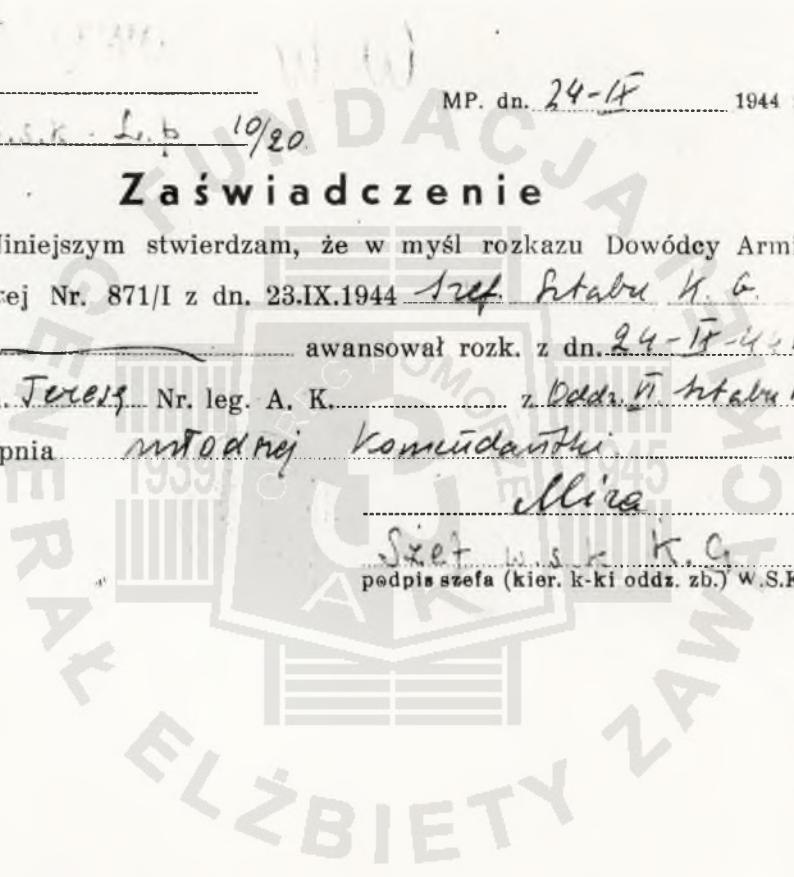 MP. dn. 24-IX 1944
w.s.k. L.p 10/20
Zaświadczenie
Niniejszym stwierdzam, że w myśl rozkazu Dowódcy Armi
ej Nr. 871/I z dn. 23.IX.1944 szef. Sztabu K. G.
awansował rozk. z dn. 24-IX-44
Teresę Nr. leg. A. K. z Oddz. VI Sztabu
pnia młodszej Komendantki
Mira
Szef w.s.k K.G
podpis szefa (kier. k-ki oddz. zb.) W.S.K
FUNDACJA GENERAŁ ELŻBIETY ZAWACKIEJ
OKRĘG POMORZE
1939 1945
AK